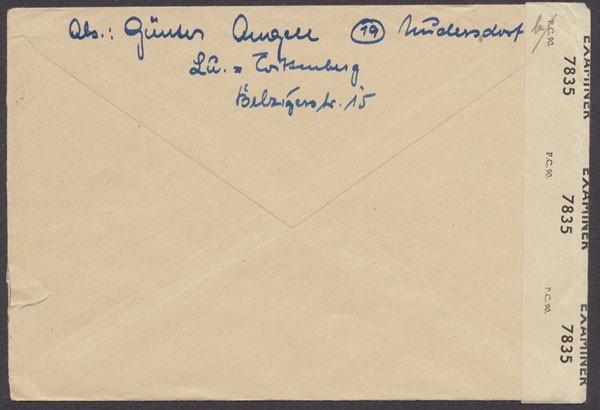 Abs.: Günter Angell (19) Nudersdorf
Lu. - Wittenberg
Belzigerstr. 15
P.C. 90.
EXAMINER
7835
P.C. 90.
EXAMINER
7835
P.C. 90.
EXAMINER
7835